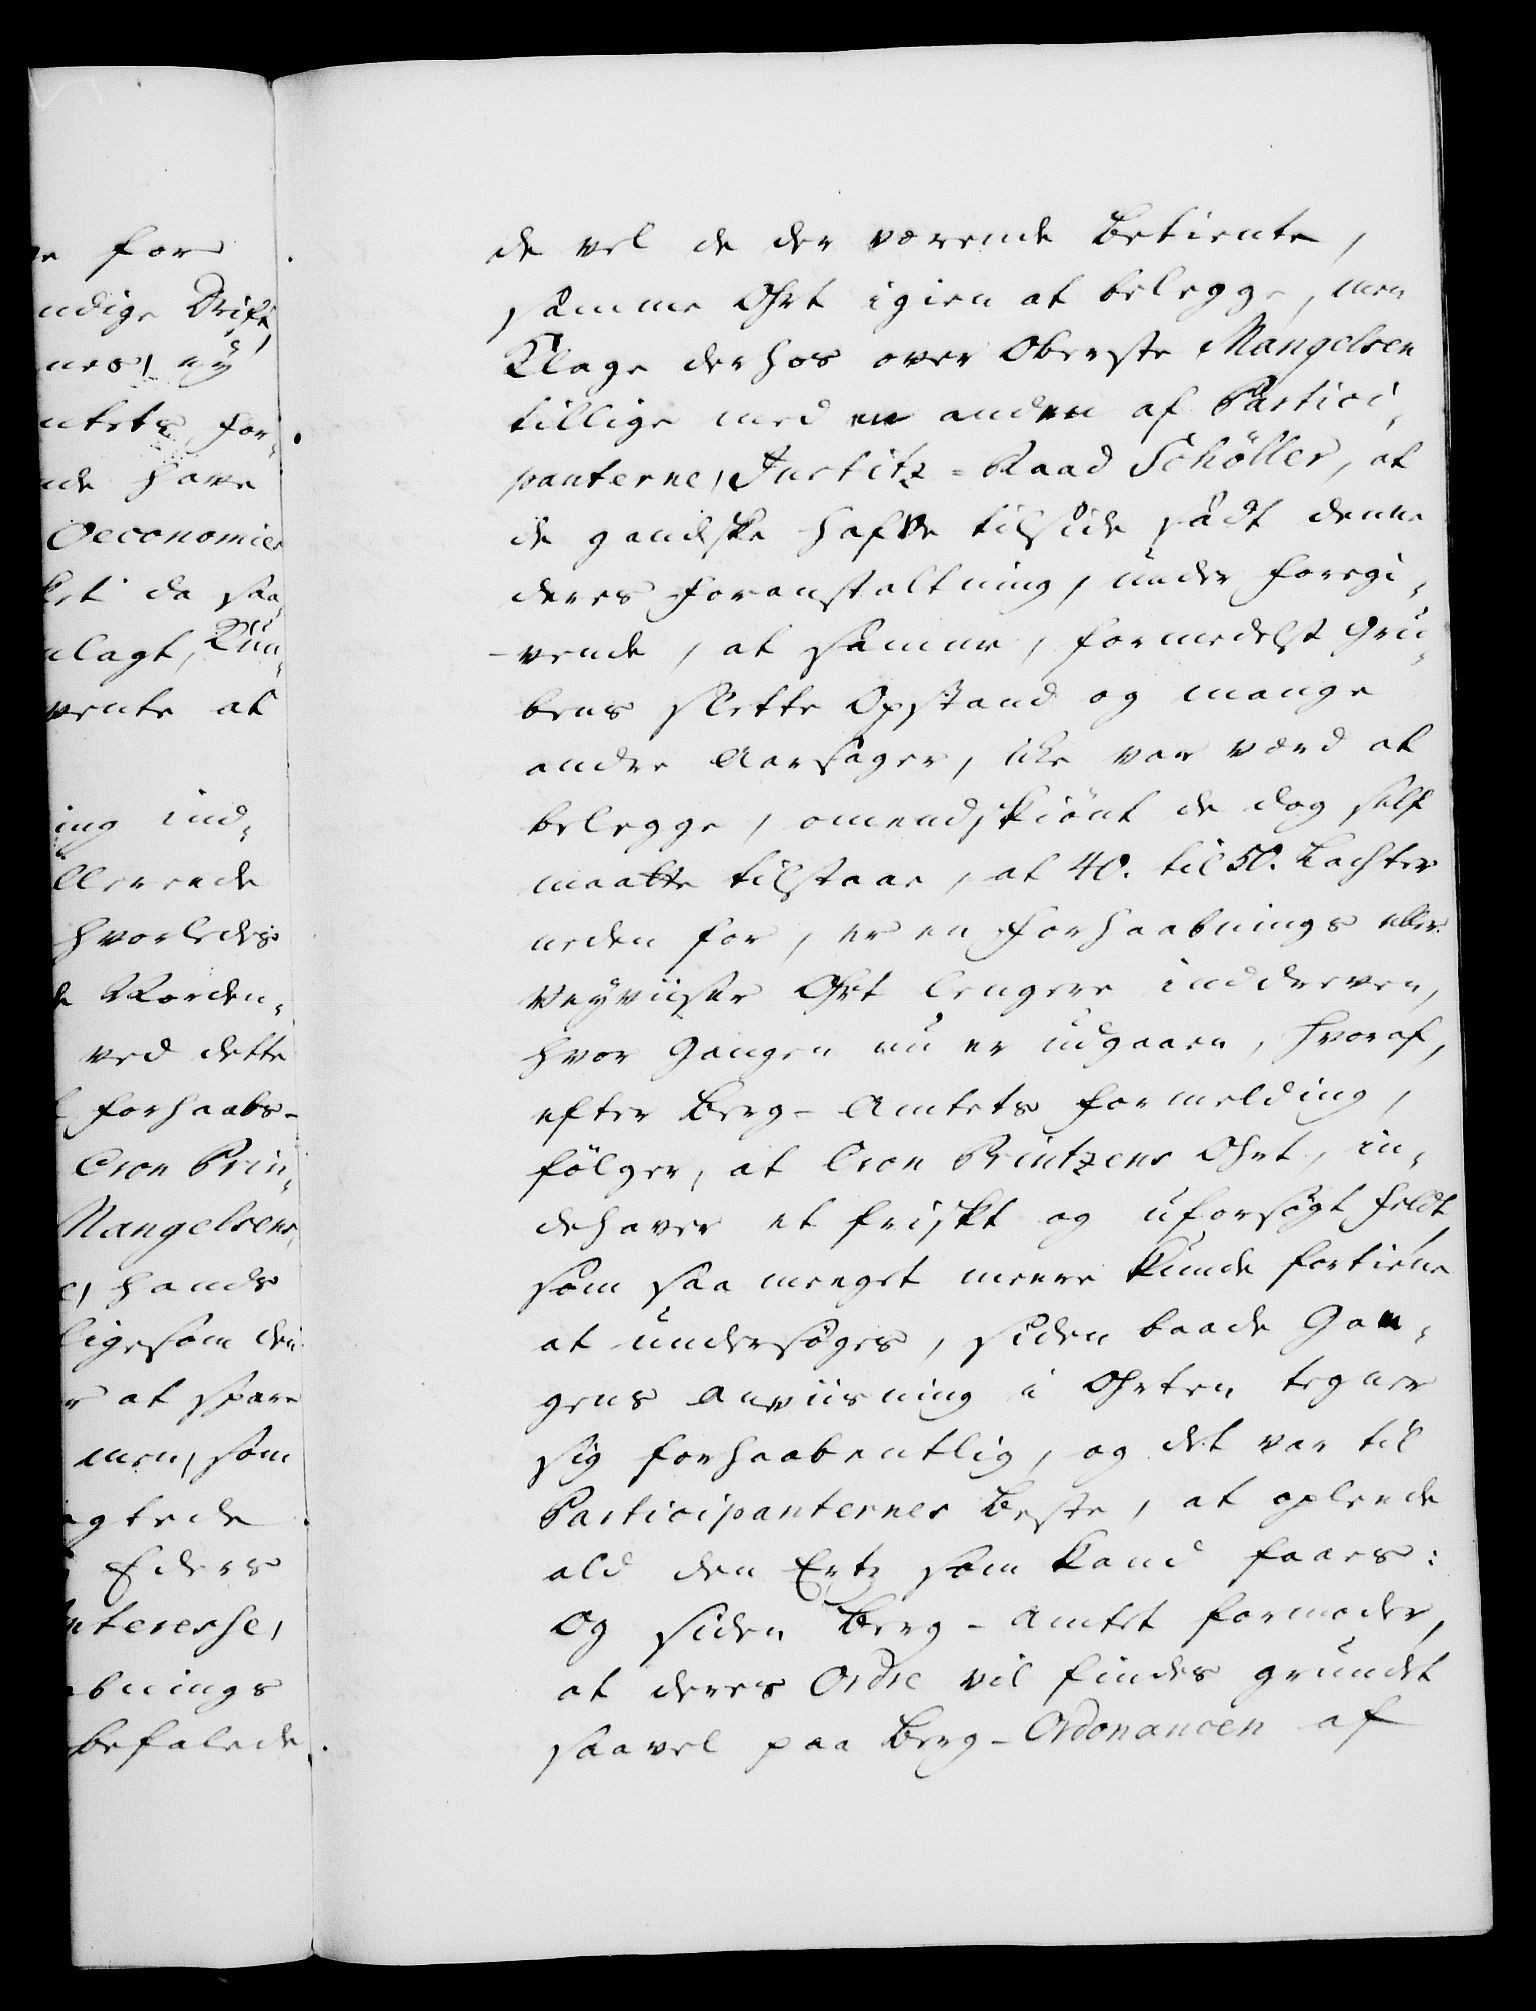 e for
ndige Drift,
nes, ny
ntets for¬
nde have
Oeconomie
ket da saa¬
nlagt, Kun¬
vente at
ing ind¬
llerende
hvorledes
Norden¬
ved dette
forhaabs-
Cron Prin¬
Mangelsens,
e, hands
ligesom den
r at spare
men, som
agtede
Eders
nteresse,
bnings
befalede
de vel de der værende Betiente,
samme Ohrt igien at belegge, men
Klage derhos over Oberste Mangelsen
tillige med en anden af Partici¬
panterne, Justitz-Raad Schöller, at
de gandske hafde tilside sadt denne
deres Foranstaltning, under Foregi¬
vende, at samme, formedelst Gru¬
bens slette Opstand og mange
andre Aarsager, ike var værd at
belegge, omendskiönt de dog self
maatte tilstaae, at 40. til 50. Lachter
neden for, er en Forhaabnings eller
Veyviiser Ohrt lengere inddreven,
hvor Gangen nu er udgaaen, hvoraf,
efter Berg-Amtets Formelding,
fölger, at Cron Printzens Ohrt, in¬
dehaver et friskt og uforsögt Feldt,
som saa meeget meere kunde fortiene
at undersöges, siden baade Gan¬
gens Anviisning i Ohrten tegner
sig forhaabentlig, og det var til
Participanternes Beste, at oplede
ald den Ertz som kand faaes:
Og siden Berg-Amtet formoder,
at deres Ordre vil findes grundet
saavel paa Berg-Ordonancen af